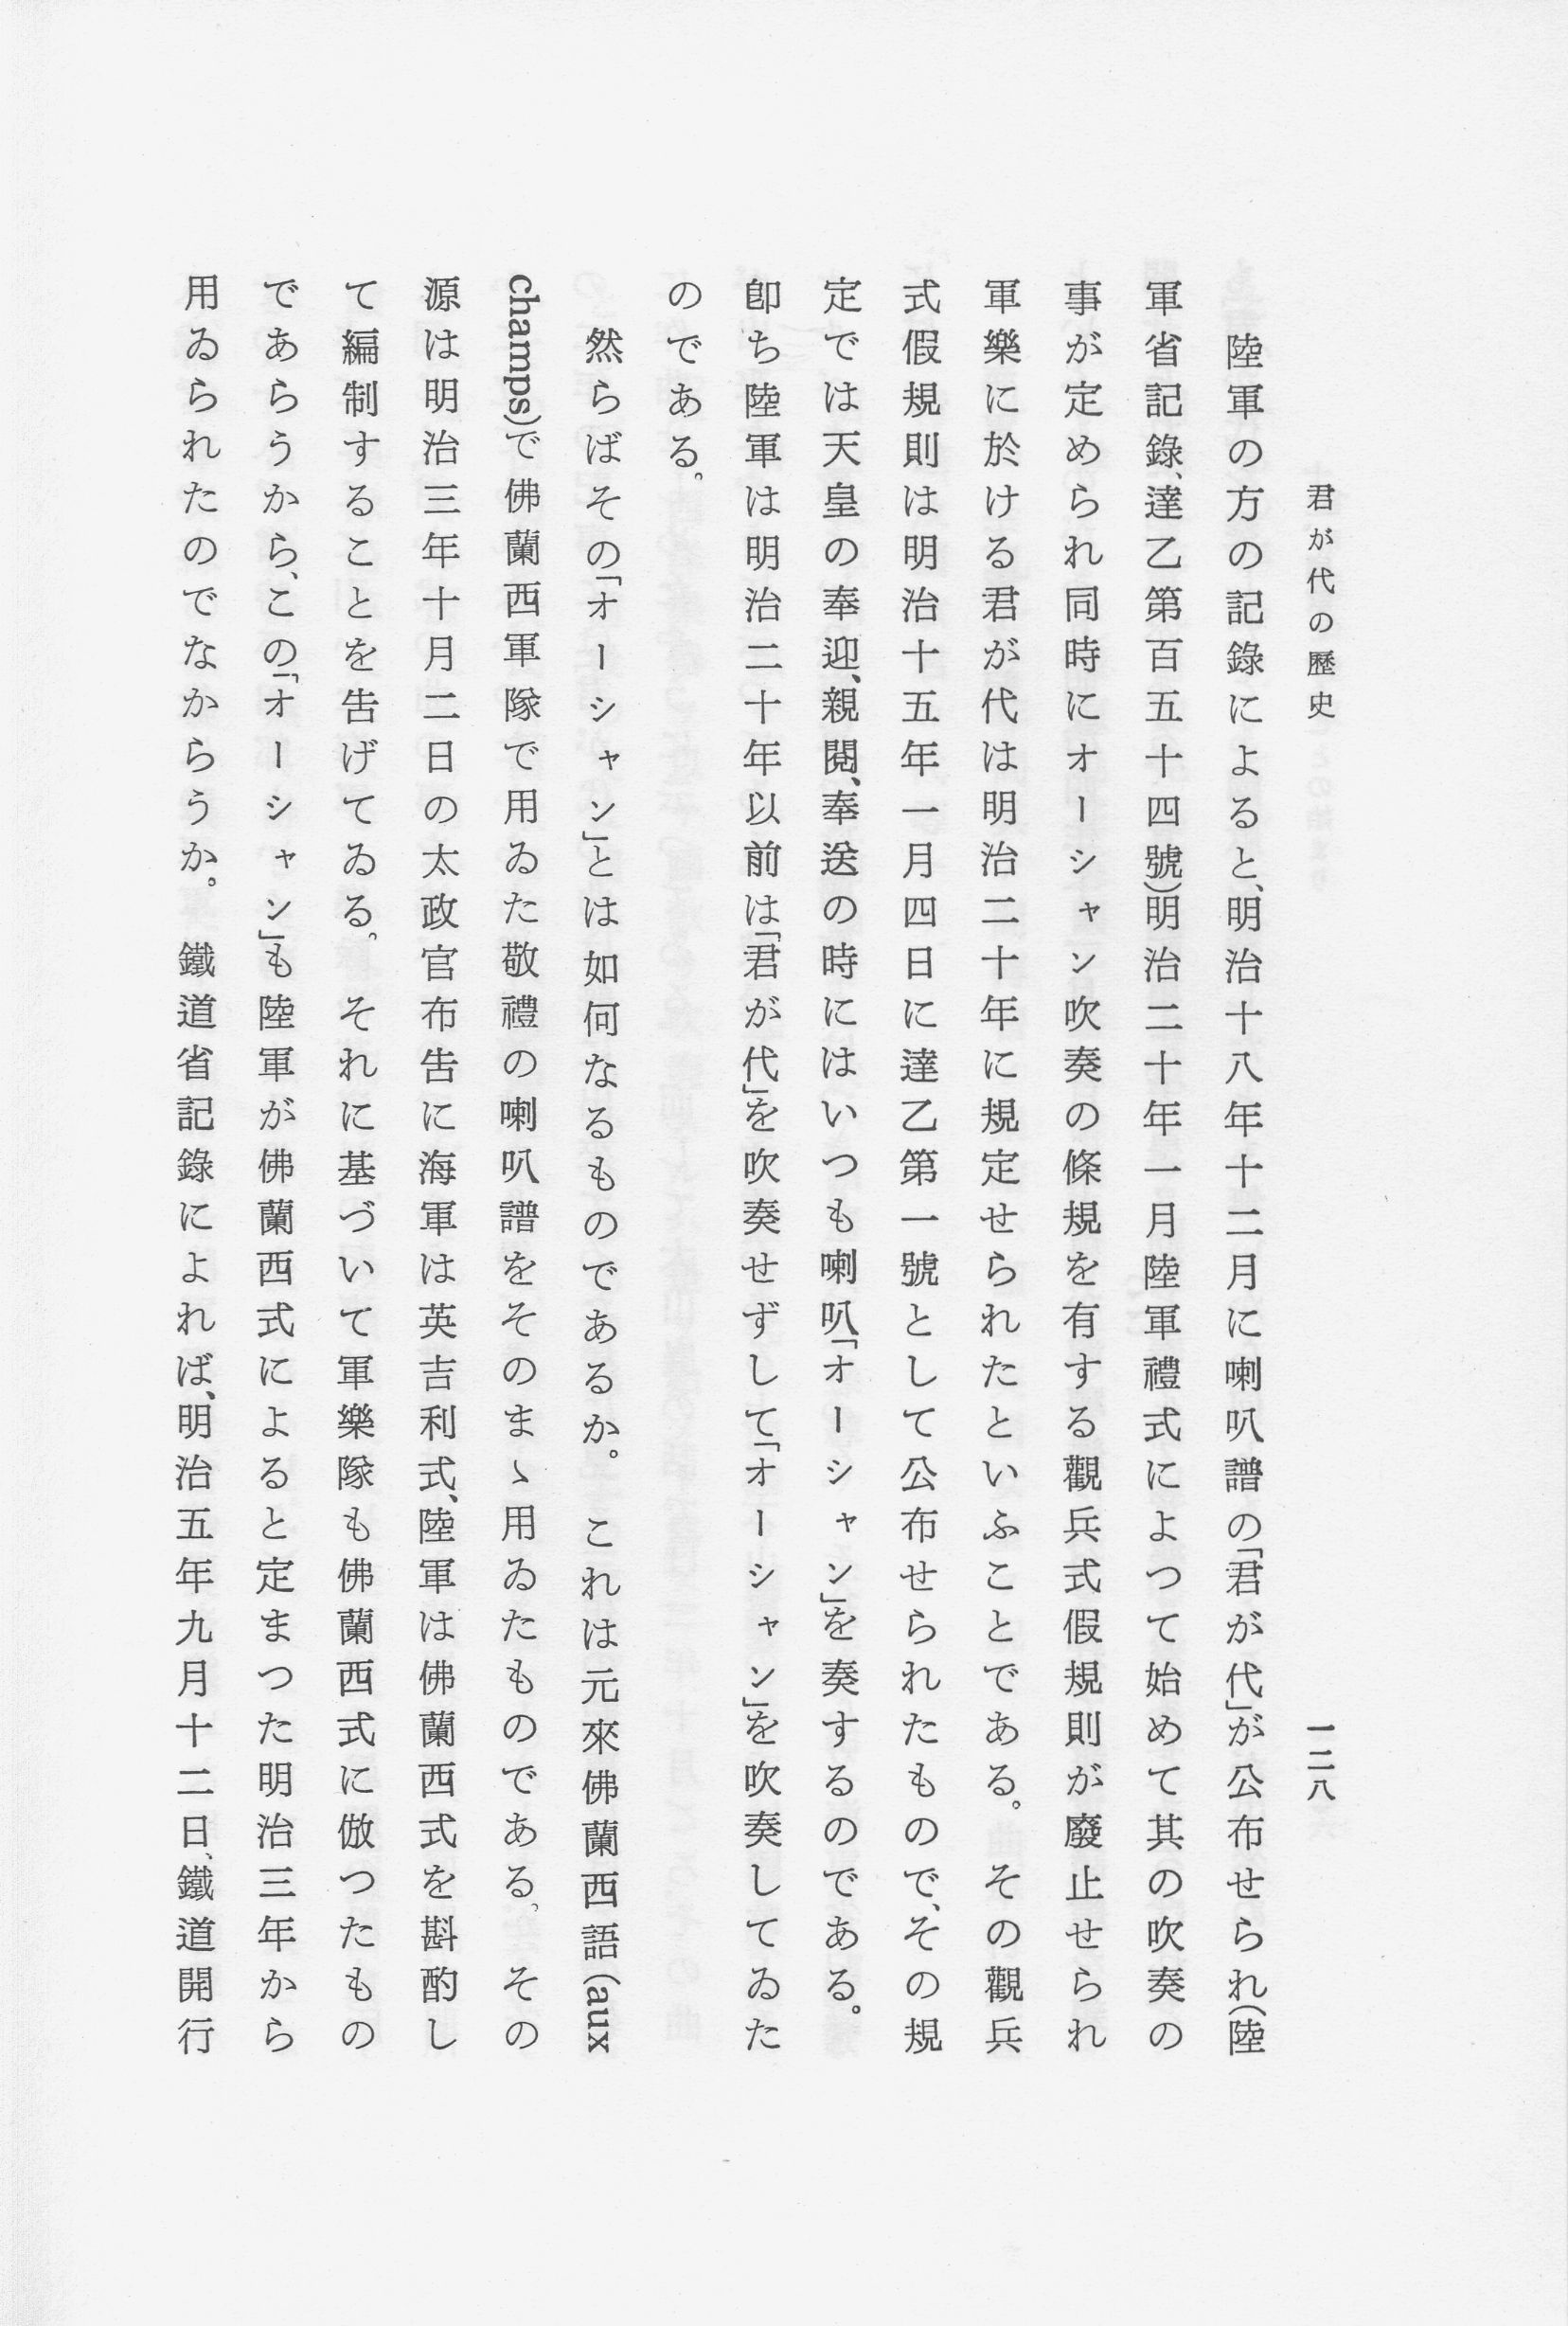 君が代の歷史
一二八
陸軍の方の記錄によると、明治十八年十二月に喇叭譜の「君が代」が公布せられ(陸
軍省記錄、達乙第百五十四號)明治二十年一月陸軍禮式によつて始めて其の吹奏の
事が定められ同時にオーシャン吹奏の條規を有する觀兵式假規則が廢止せられ
軍樂に於ける君が代は明治二十年に規定せられたといふことである。 その觀兵
式假規則は明治十五年一月四日に達乙第一號として公布せられたもので、その規
定では天皇の奉迎、親閱、奉送の時にはいつも喇叭「オーシャン」を奏するのである。
卽ち陸軍は明治二十年以前は「君が代」を吹奏せずして「オーシャン」を吹奏してゐた
のである。
然らばその「オーシャン」とは如何なるものであるか。 これは元來佛蘭西語(aux
champs)で佛蘭西軍隊で用ゐた敬禮の喇叭譜をそのまゝ用ゐたものである。 その
源は明治三年十月二日の太政官布告に海軍は英吉利式、陸軍は佛蘭西式を斟酌し
て編制することを告げてゐる。 それに基づいて軍樂隊も佛蘭西式に倣つたもの
であらうから、この「オーシャン」も陸軍が佛蘭西式によると定まつた明治三年から
用ゐられたのでなからうか。 鐵道省記錄によれば、明治五年九月十二日、鐵道開行